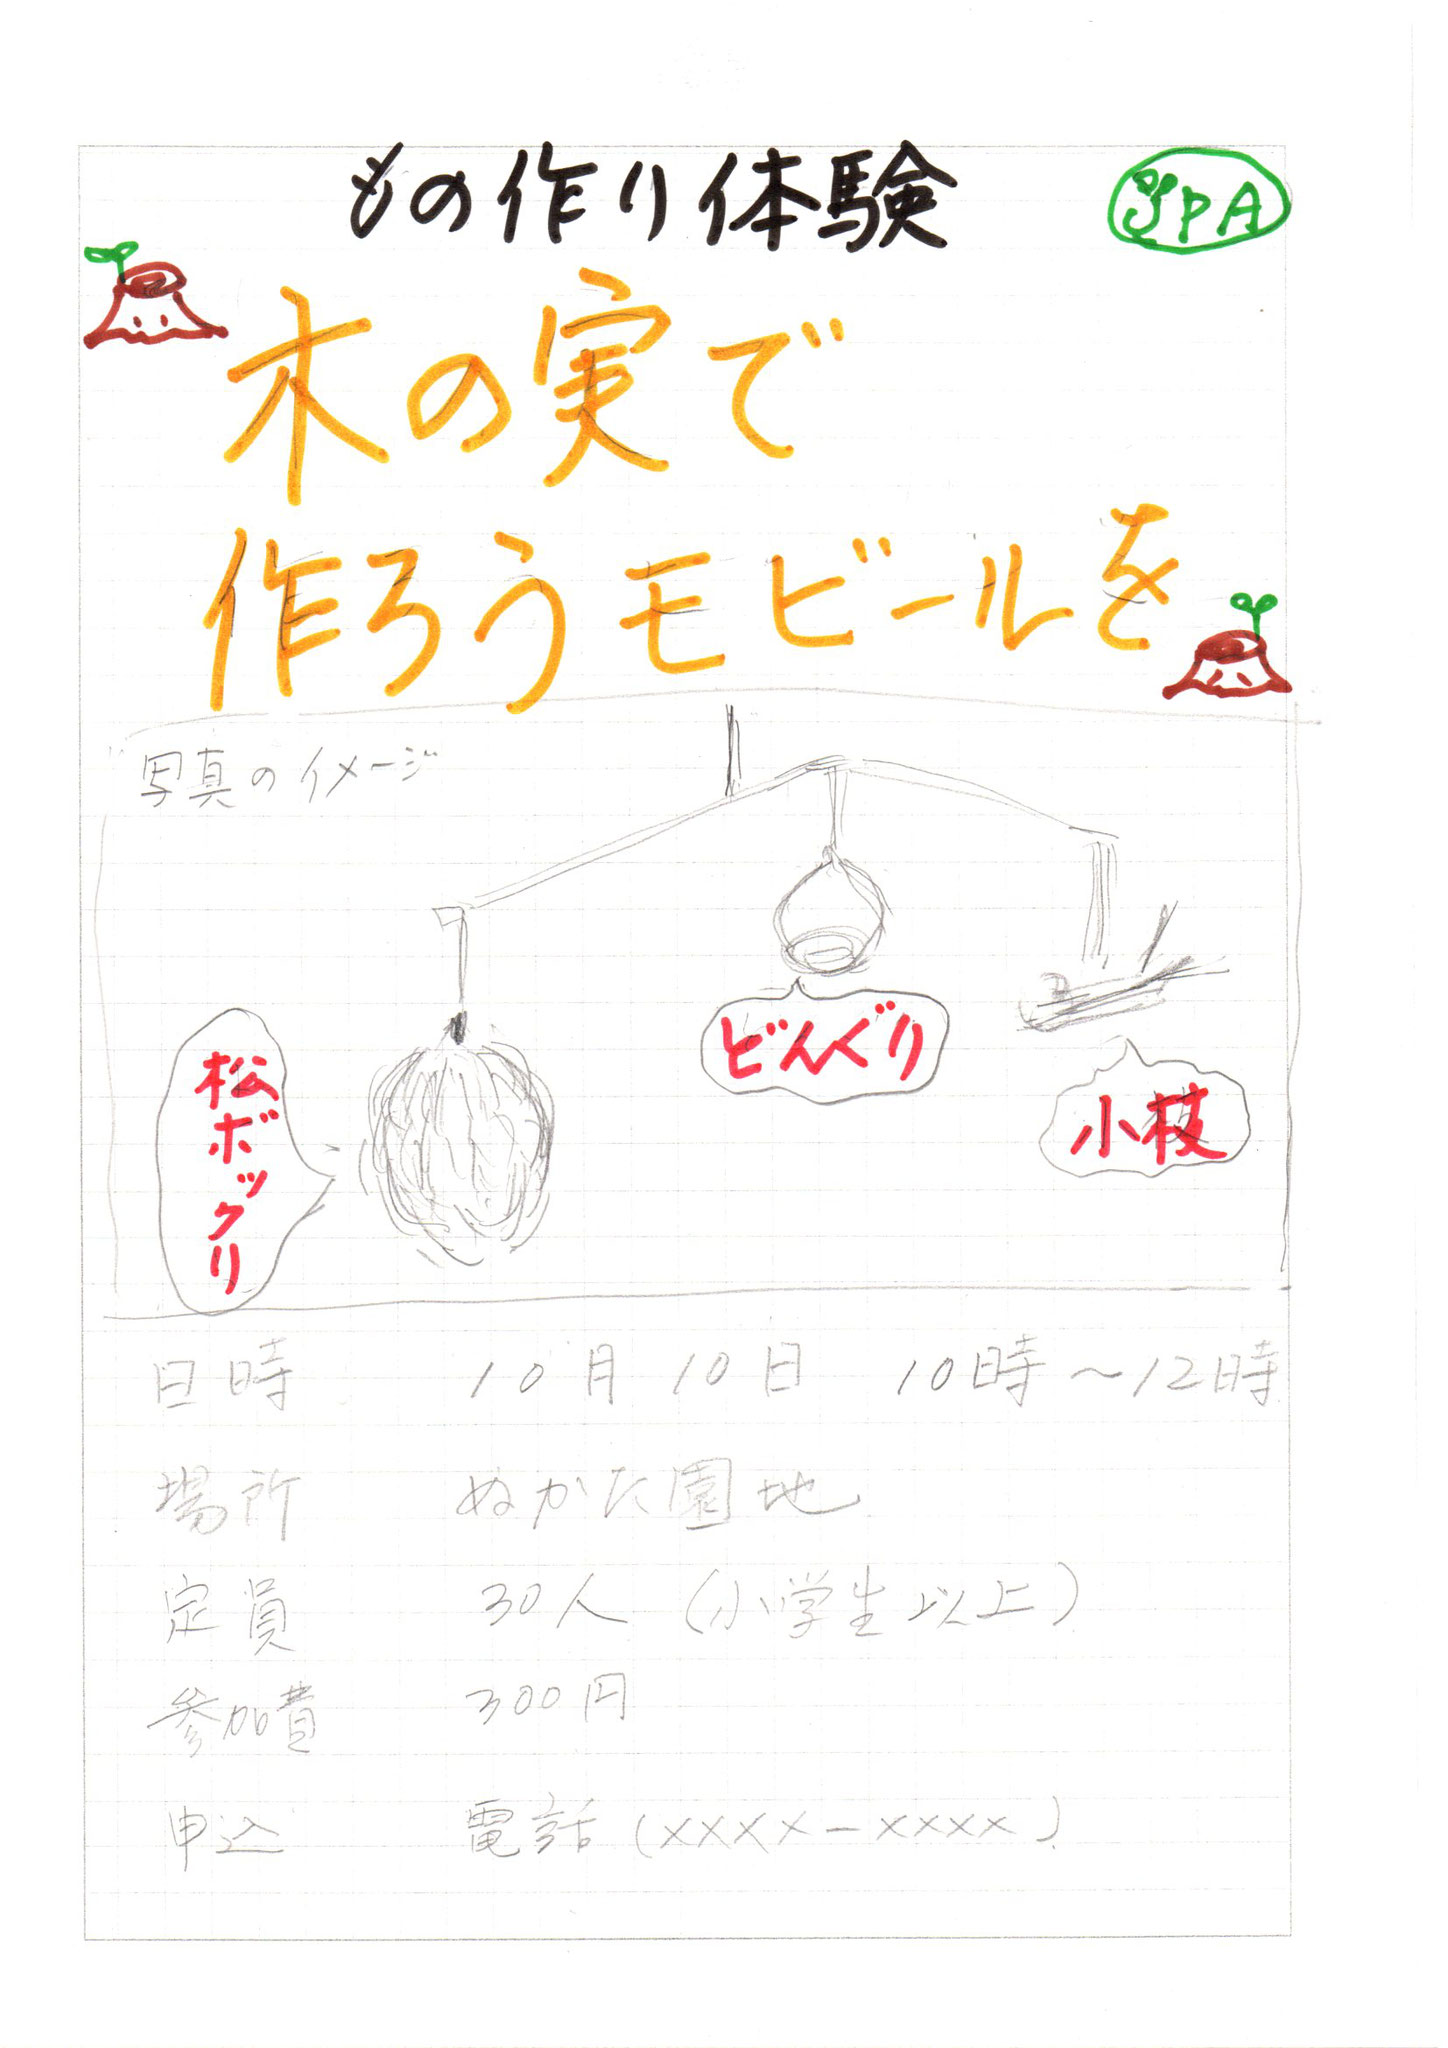 もの作り体験
JPA
木の実で
作ろうモビールを
写真のイメージ
どんぐり
小枝
松ボックリ
日時 10月10日 10時～12時
場所 ぬかた園地
定員 30人 (小学生以上)
参加費 300円
申込 電話 (××××－××××)